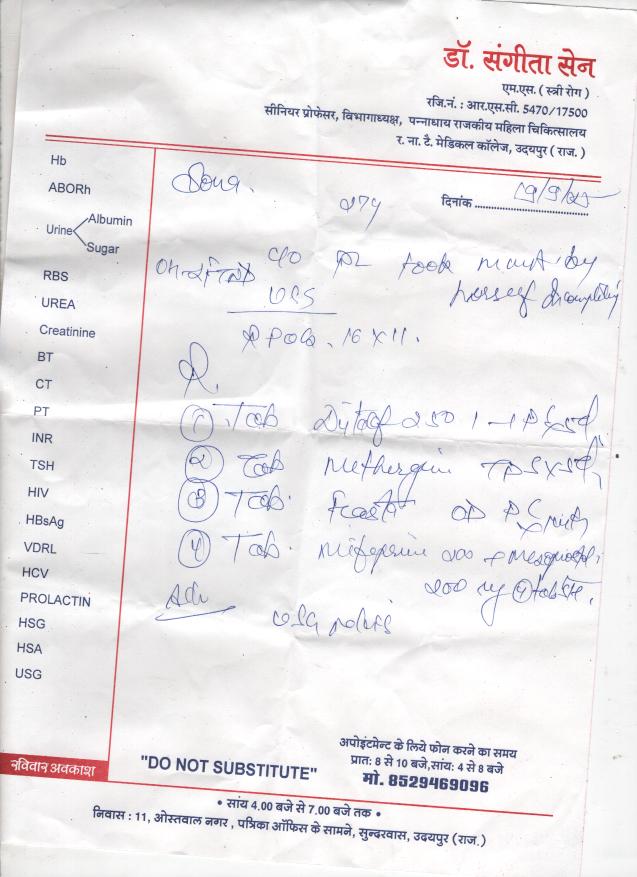 डॉ. संगीता सेन
एम.एस. ( स्त्री रोग )
रजि.नं. : आर.एस.सी. 5470/17500
सीनियर प्रोफेसर, विभागाध्यक्ष, पन्नाधाय राजकीय महिला चिकित्सालय
र. ना. टै. मेडिकल कॉलेज, उदयपुर ( राज. )
Hb
ABORh
Urine Albumin
Sugar
RBS
UREA
Creatinine
BT
CT
PT
INR
TSH
HIV
HBsAg
VDRL
HCV
PROLACTIN
HSG
HSA
USG
रविवार अवकाश
Sona.
27y
दिनांक 19/9/25
c/o took by
herself
UGS
16 x 11.
R
① Tab 250 1-1
② Tab Methergin TDS x 5d
③ Tab. OD
④ Tab. 200 +
200 mg ④
Adv
USG pelvis
"DO NOT SUBSTITUTE"
अपोइंटमेन्ट के लिये फोन करने का समय
प्रात: 8 से 10 बजे, सांय: 4 से 8 बजे
मो. 8529469096
• सांय 4.00 बजे से 7.00 बजे तक •
निवास : 11, ओस्तवाल नगर , पत्रिका ऑफिस के सामने, सुन्दरवास, उदयपुर (राज.)